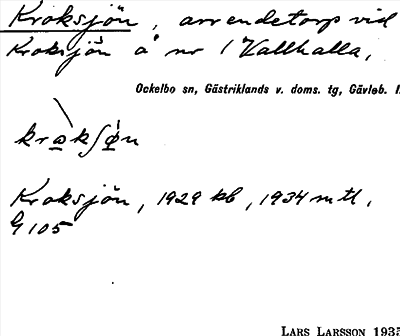 Kroksjön, arrendetorp vid
Kroksjön å nr 1 Vallhalla,
Ockelbo sn, Gästriklands v. doms. tg, Gävleb. l
krokʃøn
Kroksjön, 1929 kb, 1934 mtl,
G 105
LARS LARSSON 1935